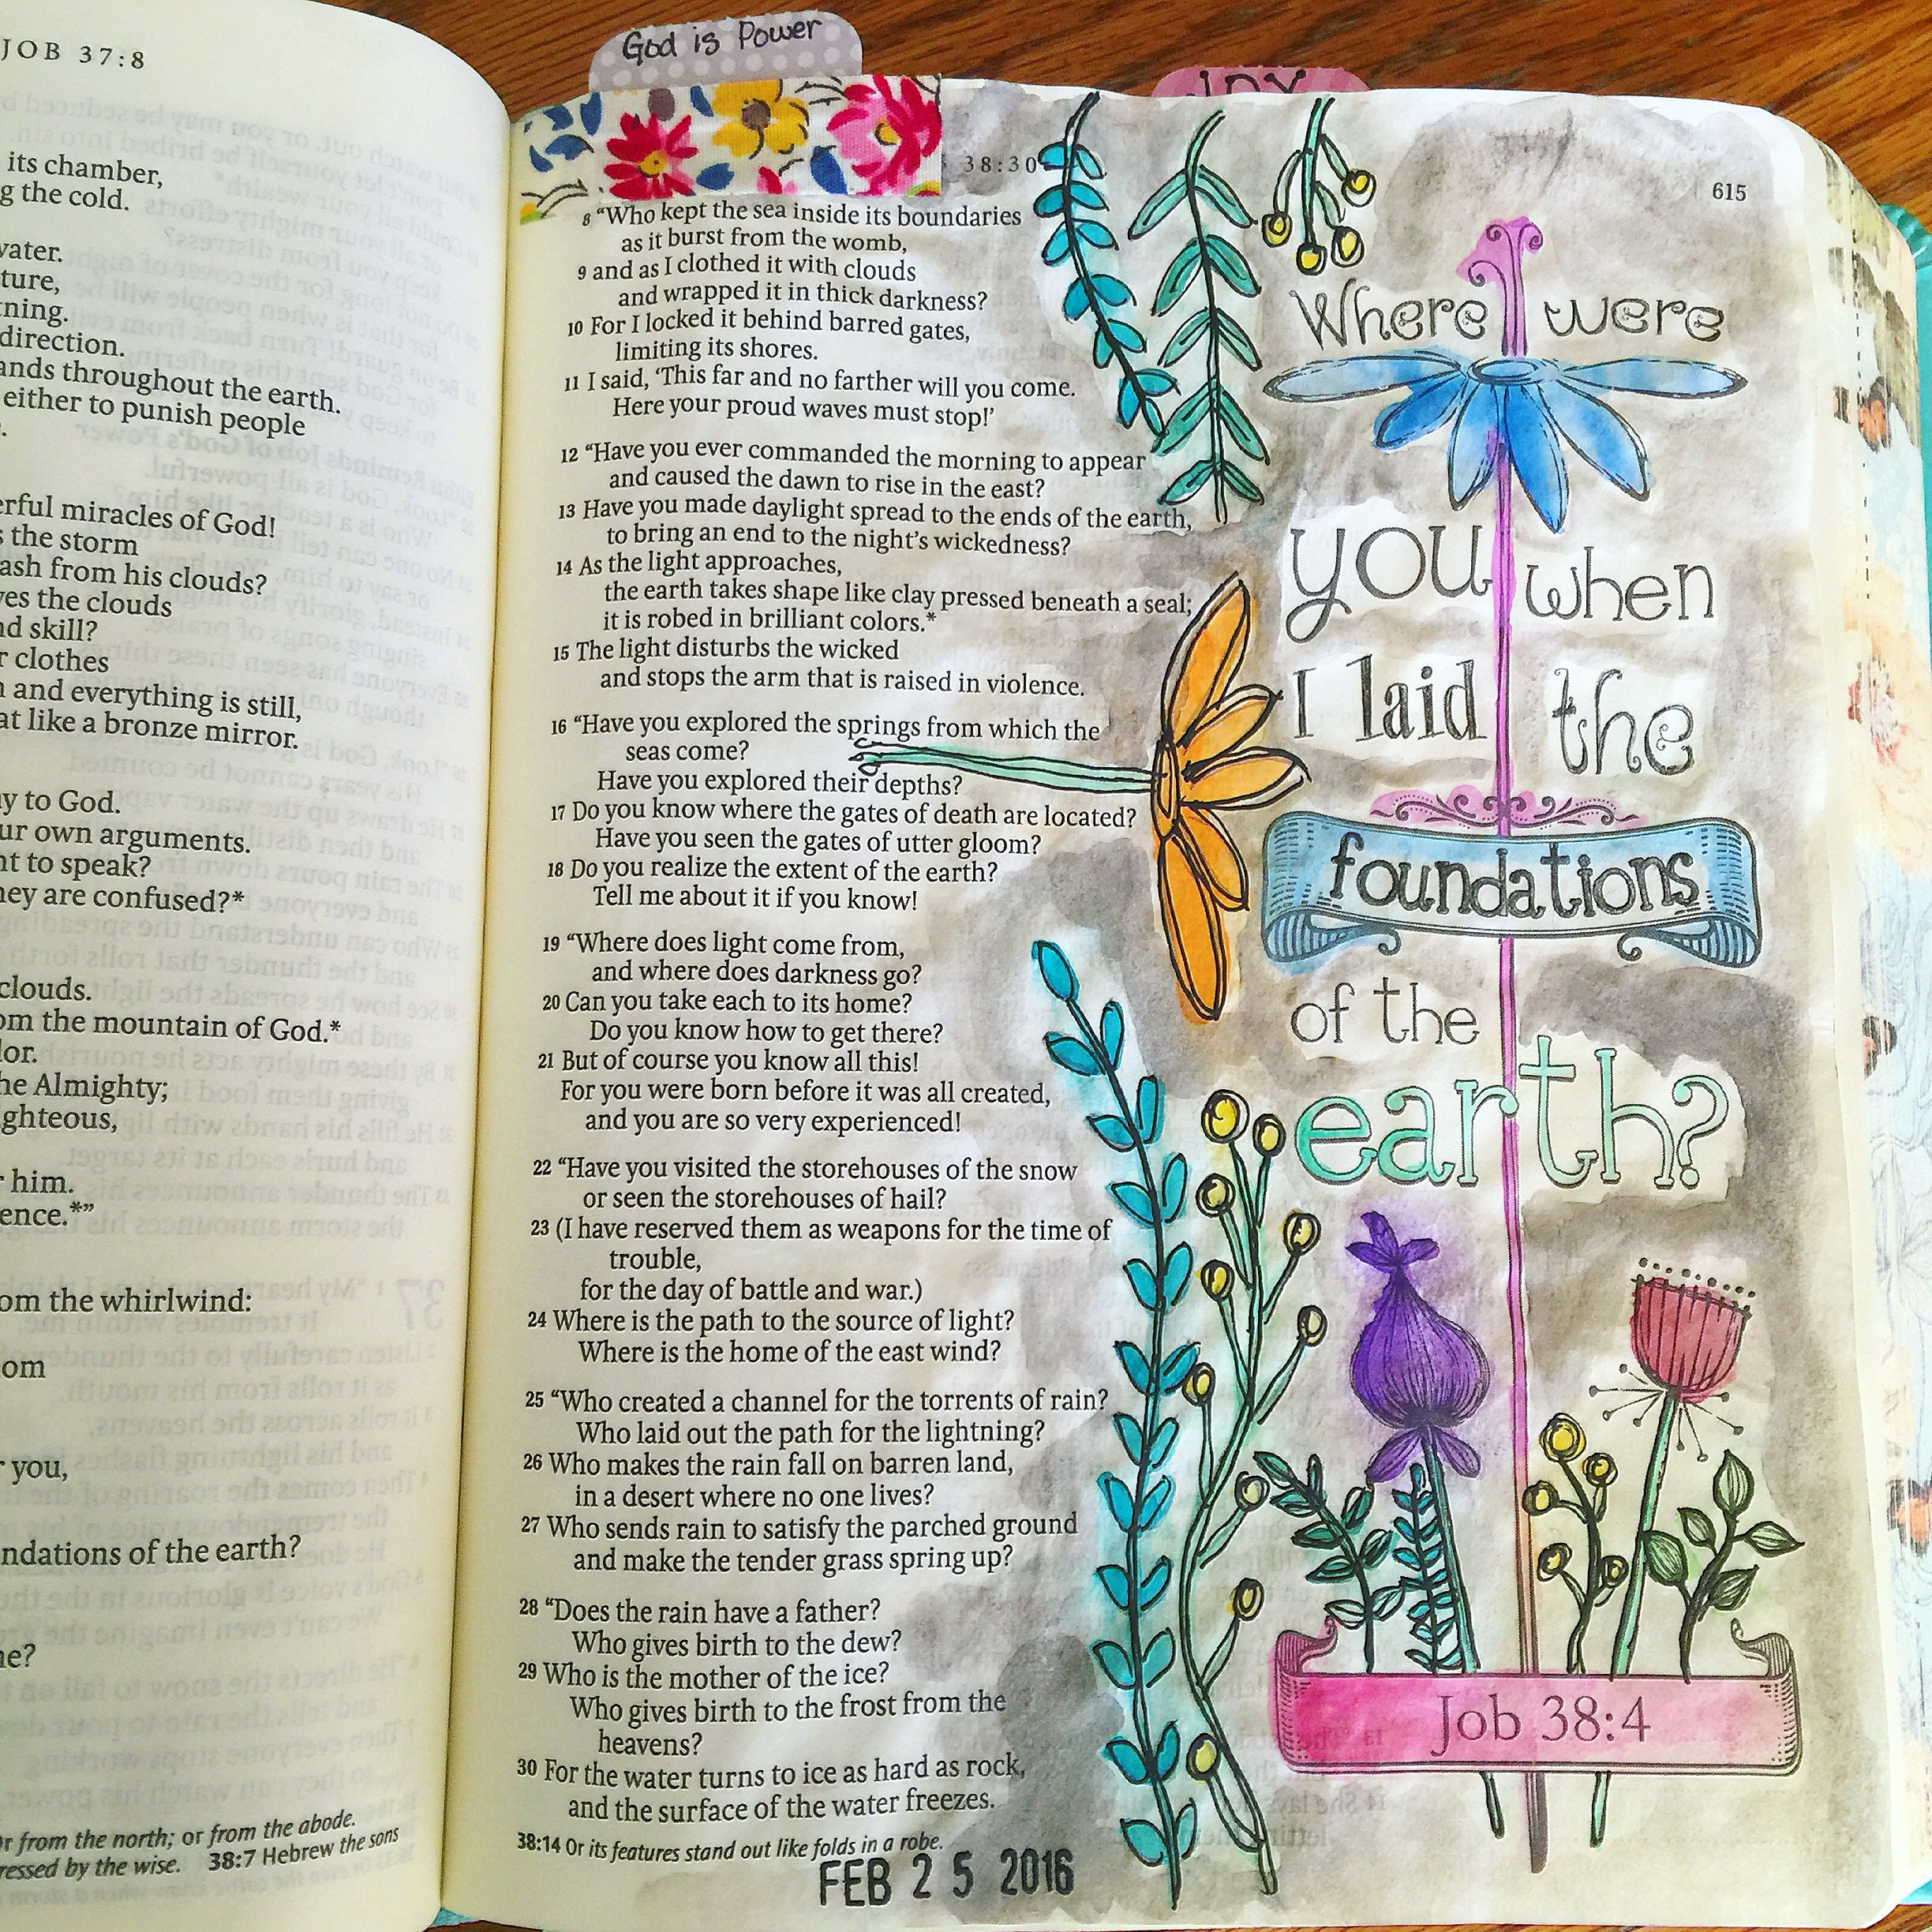 JOB 37:8
its chamber,
the cold.
direction.
throughout the earth.
either to punish people
miracles of God!
the storm
from his clouds?
the clouds
skill?
clothes
and everything is still,
like a bronze mirror.
to God.
own arguments.
to speak?
are confused?*
clouds.
the mountain of God.*
the Almighty;
him.
the whirlwind:
you,
of the earth?
from the north; or from the abode.
by the wise. 38:7 Hebrew the sons
God is Power
JOY
38:30
615
8 “Who kept the sea inside its boundaries
as it burst from the womb,
9 and as I clothed it with clouds
and wrapped it in thick darkness?
10 For I locked it behind barred gates,
limiting its shores.
11 I said, ‘This far and no farther will you come.
Here your proud waves must stop!’
12 “Have you ever commanded the morning to appear
and caused the dawn to rise in the east?
13 Have you made daylight spread to the ends of the earth,
to bring an end to the night’s wickedness?
14 As the light approaches,
the earth takes shape like clay pressed beneath a seal;
it is robed in brilliant colors.*
15 The light disturbs the wicked
and stops the arm that is raised in violence.
16 “Have you explored the springs from which the
seas come?
Have you explored their depths?
17 Do you know where the gates of death are located?
Have you seen the gates of utter gloom?
18 Do you realize the extent of the earth?
Tell me about it if you know!
19 “Where does light come from,
and where does darkness go?
20 Can you take each to its home?
Do you know how to get there?
21 But of course you know all this!
For you were born before it was all created,
and you are so very experienced!
22 “Have you visited the storehouses of the snow
or seen the storehouses of hail?
23 (I have reserved them as weapons for the time of
trouble,
for the day of battle and war.)
24 Where is the path to the source of light?
Where is the home of the east wind?
25 “Who created a channel for the torrents of rain?
Who laid out the path for the lightning?
26 Who makes the rain fall on barren land,
in a desert where no one lives?
27 Who sends rain to satisfy the parched ground
and make the tender grass spring up?
28 “Does the rain have a father?
Who gives birth to the dew?
29 Who is the mother of the ice?
Who gives birth to the frost from the
heavens?
30 For the water turns to ice as hard as rock,
and the surface of the water freezes.
38:14 Or its features stand out like folds in a robe.
FEB 25 2016
Where were
you when
I laid the
foundations
of the
earth?
Job 38:4